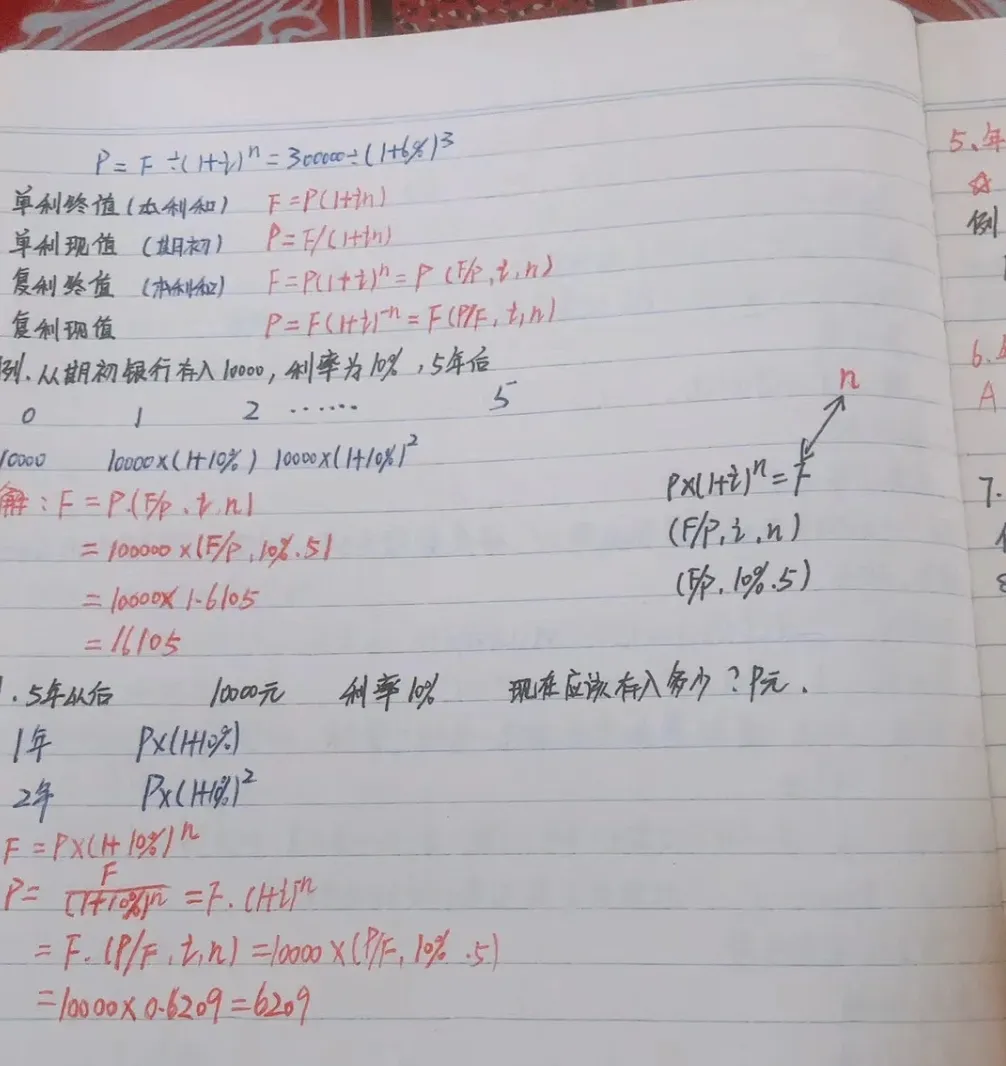 P = F ÷(1+i)ⁿ = 300000÷(1+6%)³
单利终值(本利和) F = P(1+in)
单利现值 (期初) P = F/(1+in)
复利终值 (本利和) F = P(1+i)ⁿ = P (F/P, i, n)
复利现值 P = F(1+i)⁻ⁿ = F(P/F, i, n)
例. 从期初银行存入10000, 利率为10%, 5年后
0 1 2 ...... 5
10000 10000×(1+10%) 10000×(1+10%)²
解: F = P.(F/P, i, n)
= 100000×(F/P, 10%.5)
= 10000× 1.6105
= 16105
n
P×(1+i)ⁿ = F
(F/P, i, n)
(F/P, 10%.5)
. 5年以后 10000元 利率10% 现在应该存入多少? P元.
1年 P×(1+10%)
2年 P×(1+10%)²
F = P×(1+10%)ⁿ
P = F/(1+10%)ⁿ = F.(1+i)⁻ⁿ
= F.(P/F, i, n) = 10000×(P/F, 10%.5)
= 10000×0.6209 = 6209
5、年
☆
例
6.
A
7.